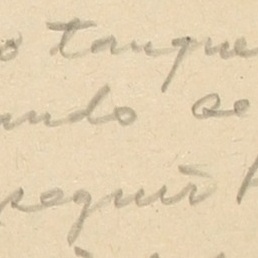 o tanque
ando se
seguir